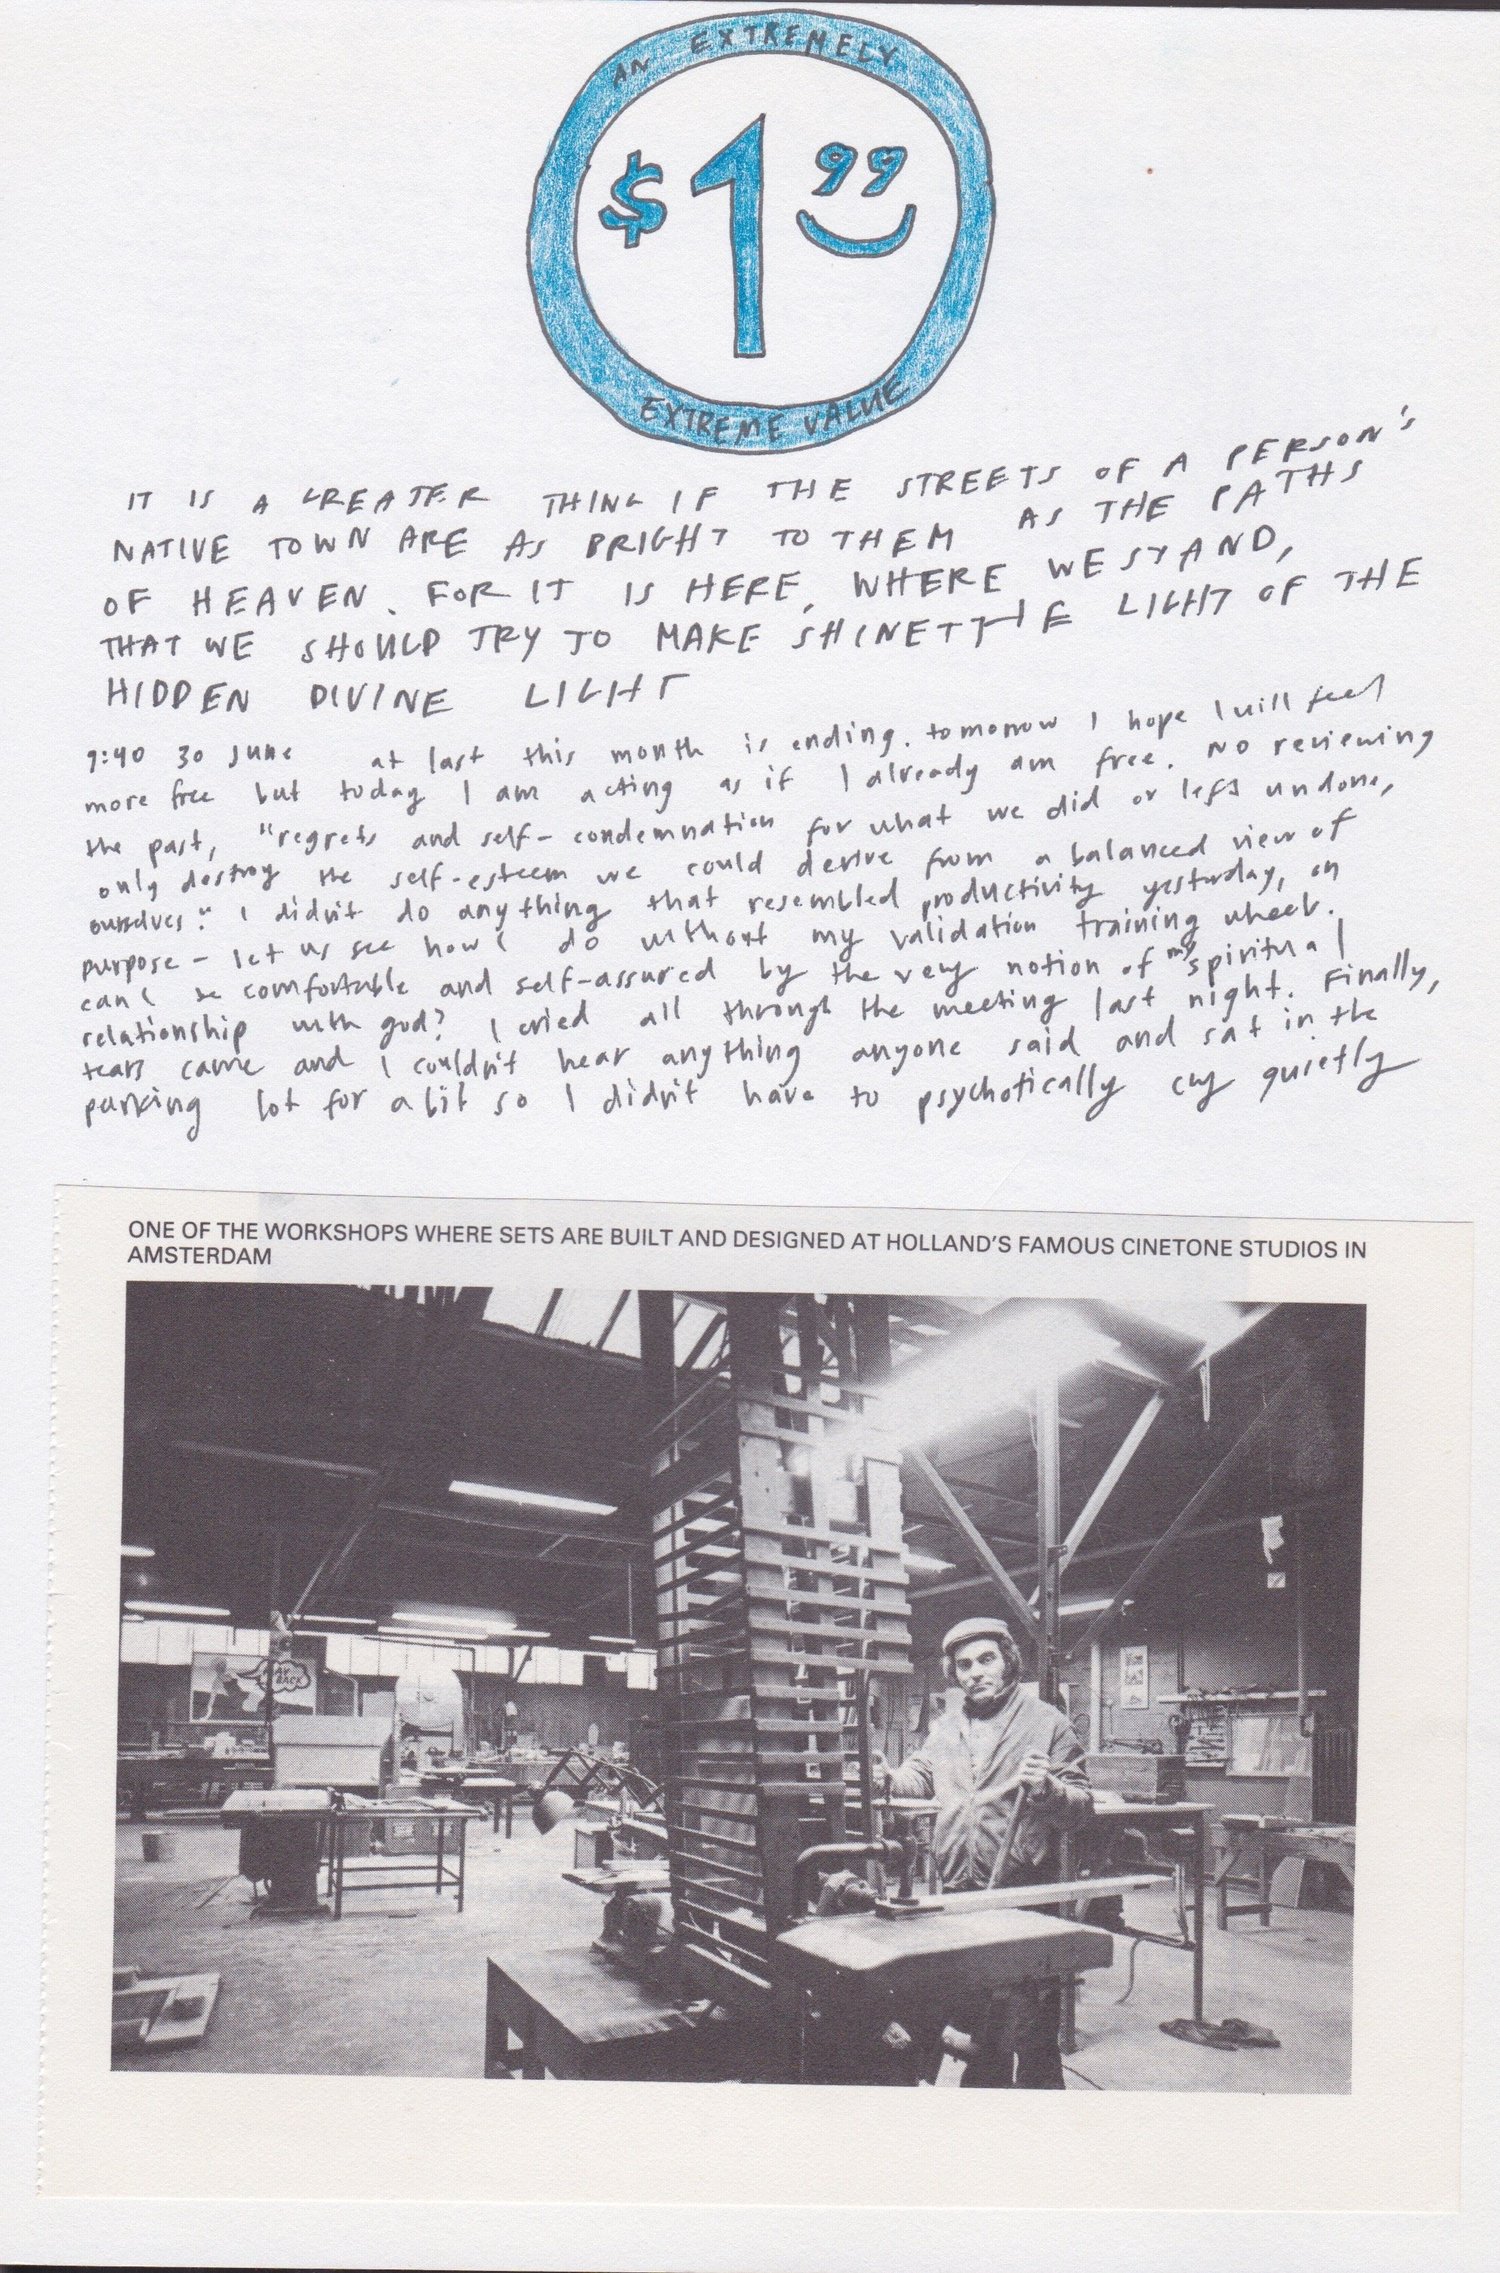 AN EXTREMELY
$1 99
EXTREME VALUE
IT IS A GREATER THING IF THE STREETS OF A PERSON'S
NATIVE TOWN ARE AS BRIGHT TO THEM AS THE PATHS
OF HEAVEN. FOR IT IS HERE, WHERE WE STAND,
THAT WE SHOULD TRY TO MAKE SHINE THE LIGHT OF THE
HIDDEN DIVINE LIGHT
9:40 30 June at last this month is ending. tomorrow I hope I will feel
more free but today I am acting as if I already am free. No reviewing
the past, "regrets and self-condemnation for what we did or left undone,
only destroy the self-esteem we could derive from a balanced view of
ourselves." I didn't do anything that resembled productivity yesterday, on
purpose - let us see how I do without my validation training wheels.
can I be comfortable and self-assured by the very notion of my spiritual
relationship with god? I cried all through the meeting last night. Finally,
tears came and I couldn't hear anything anyone said and sat in the
parking lot for a bit so I didn't have to psychotically cry quietly
ONE OF THE WORKSHOPS WHERE SETS ARE BUILT AND DESIGNED AT HOLLAND'S FAMOUS CINETONE STUDIOS IN
AMSTERDAM
PLAY
BACK